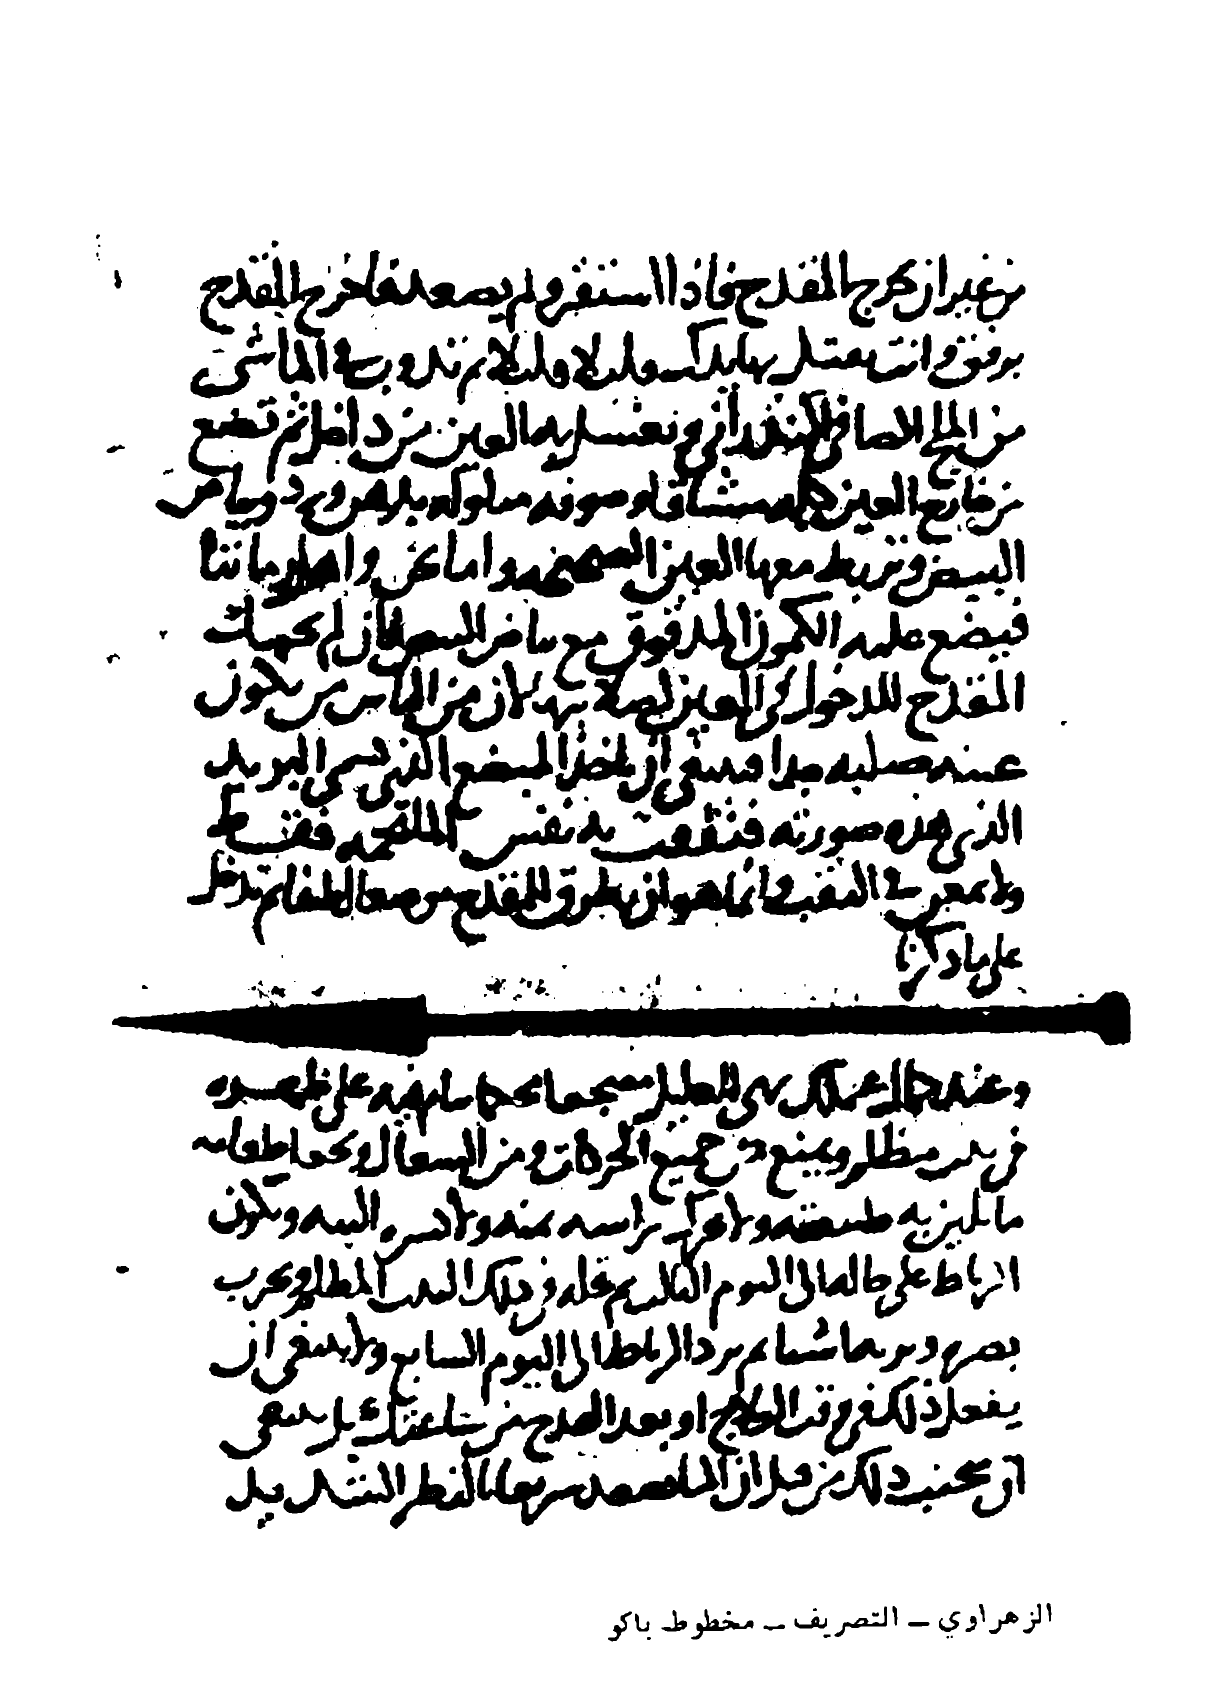 من غير ان تخرج المقدح فاذا استقر ولم يصعد فاخرج المقدح
برفق وانت تفتل بها يدك قليلا قليلا ثم تذوب في الماء شي
من الملح الصافي الاندراني وتغسل به العين من داخل ثم تضع
من خارج العين كله مشاقه او صوفه مبلوله بدهن ورد وبياض
البيض وتربط معها العين الصحيحه واما نحن واهل زماننا
فيضع عليه الكمون المدقوق مع بياض البيض فان لم يجبك
المقدح للدخول في العين لصلابتها لان من الناس من يكون
عينه صلبه جدا فينبغي ان تاخذ المبضع الذي يسمى البريد
الذي هذه صورته فتثقب به نفس الملتحمه فقط
ولا تمعن في الثقب وانما هو ان تطرق للمقدح موضعا لطيفا ثم تدخل
على ما ذكرنا
وعند كمال عملك يهيى للعليل مضجعا محكما ينام فيه على ظهره
في بيت مظلم ويمنع من جميع الحركات ومن السعال ويجعل طعامه
ما يلين به طبيعته ولا يحرك راسه يمنه ولا يسره البته ويكون
الرباط على حاله الى اليوم الثالث ثم تحله في ذلك البيت المظلم وتجرب
بصره وتريه اشيا ثم ترد الرباط الى اليوم السابع ولا ينبغي ان
يفعل ذلك في وقت العلاج او بعد القدح من ساعتك بل ينبغي
ان تجتنب ذلك من قبل ان الما يصعد سريعا بالنظر الشديد بل
الزهراوي ـ التصريف ـ مخطوط باكو